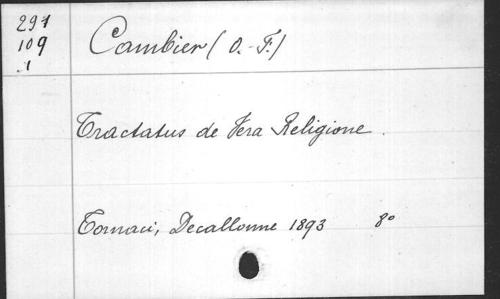 291
109
.1
Cambier (O.-F.)
Tractatus de Vera Religione.
Tornaci, Decallonne 1893 8°